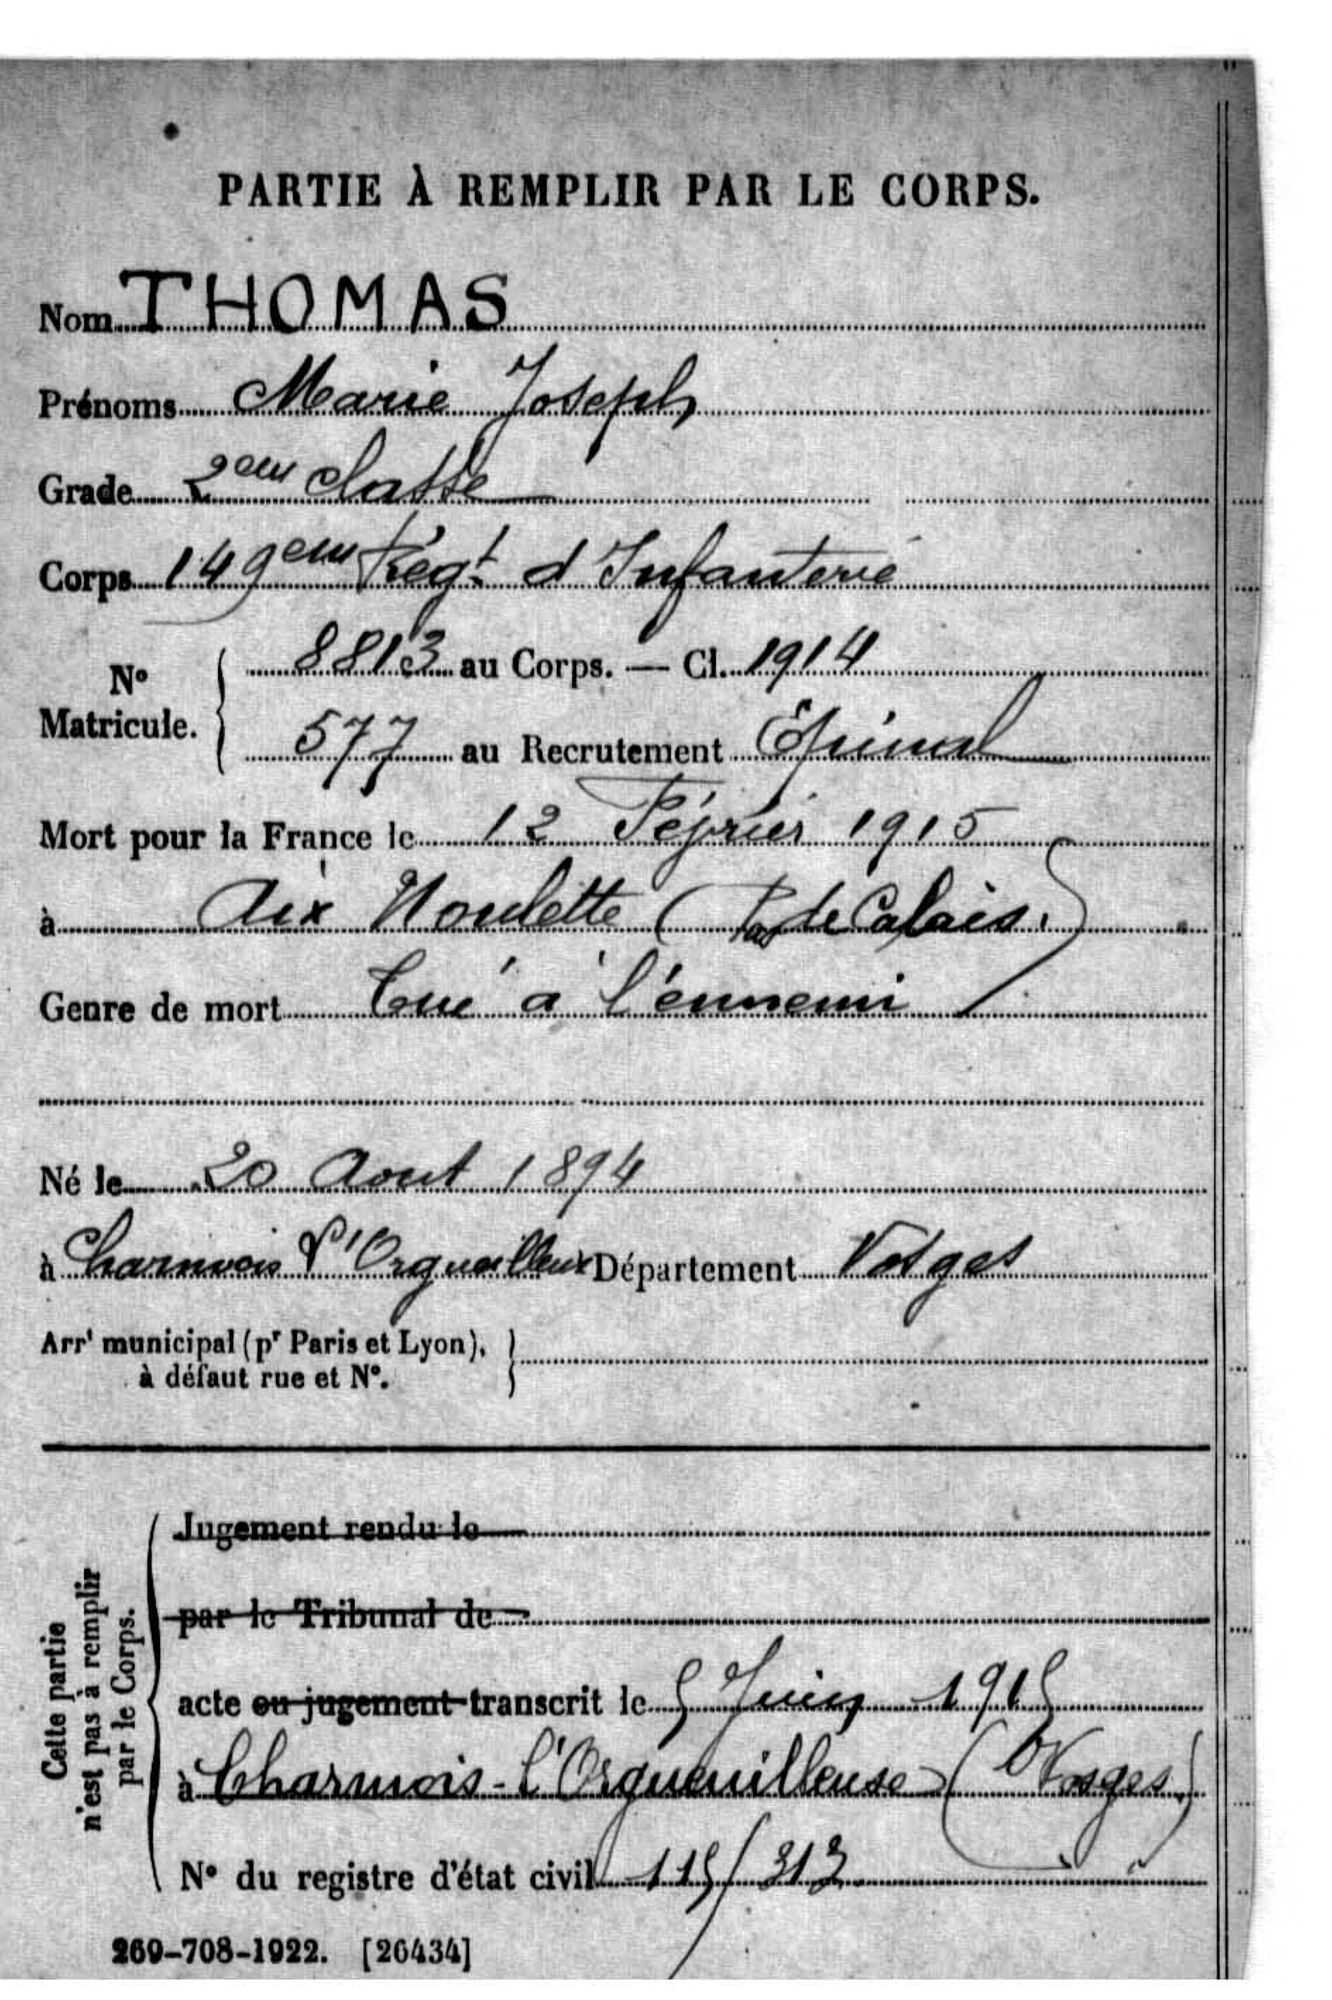 PARTIE À REMPLIR PAR LE CORPS.
Nom THOMAS
Prénoms Marie Joseph
Grade 2eme classe
Corps 149eme Régt d'Infanterie
N° Matricule. 8813 au Corps. — Cl. 1914
577 au Recrutement Épinal
Mort pour la France le 12 Février 1915
à Aix Noulette (Pas de Calais.)
Genre de mort Tué à l'ennemi
Né le 20 Aout 1894
à Charmois l'Orgueilleux Département Vosges
Arrt municipal (pr Paris et Lyon),
à défaut rue et N°.
Cette partie
n'est pas à remplir
par le Corps.
Jugement rendu le
par le Tribunal de
acte ou jugement transcrit le 5 Juin 1915
à Charmois-l'Orgueuilleuse (Vosges)
N° du registre d'état civil 115/313
269-708-1922. [26434]